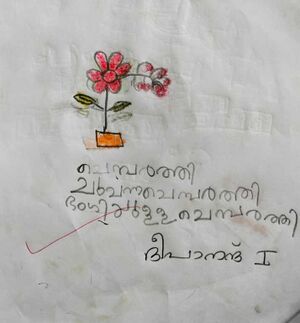 ചെമ്പരത്തി
ചുവന്നചെമ്പരത്തി
ഭംഗിയുള്ള ചെമ്പരത്തി
ദീപാനന്ദ് I